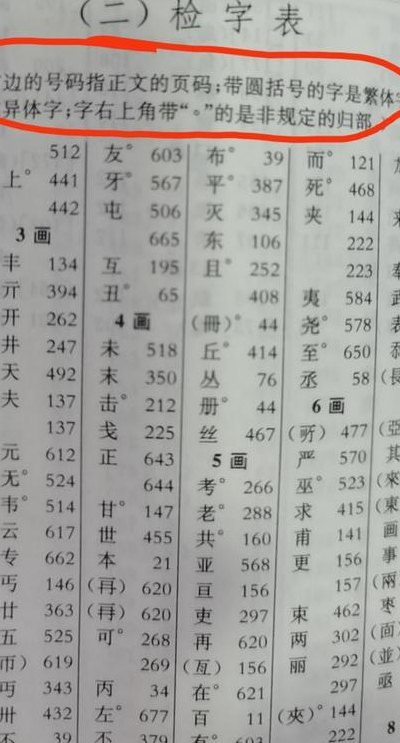 （二）检字表
边的号码指正文的页码；带圆括号的字是繁体字
异体字；字右上角带“°”的是非规定的归部
512
上° 441
442
3 画
丰 134
亓 394
开 262
井 247
天 492
夫 137
137
元 612
无° 524
韦° 514
云 617
专 662
丐 146
廿 363
五 525
帀） 619
丏 343
卅 432
不 39
友° 603
牙° 567
屯 506
665
互 195
丑° 65
4 画
未 518
末 350
击° 212
戋 225
正 643
644
甘° 147
世 455
本 21
620
620
可° 268
269
丙 34
左° 677
丕 379
布° 39
平° 387
灭 345
东 106
且° 252
408
（冊）° 44
丘° 414
丛 76
册° 44
丝 467
5 画
考° 266
老° 288
共° 160
亚 568
亘 156
吏 297
再 620
（亙） 156
在° 621
百 11
有° 603
而° 121
死° 468
夹 144
222
223
夷 584
尧° 578
至° 650
丞 58
6 画
477
严 570
巫° 523
求 415
甫 141
更 156
157
束 462
两 302
丽 292
297
（夾）° 144
222
（長
（亞
其
（來
（東
画
事
（兩
枣
（並
亟
8